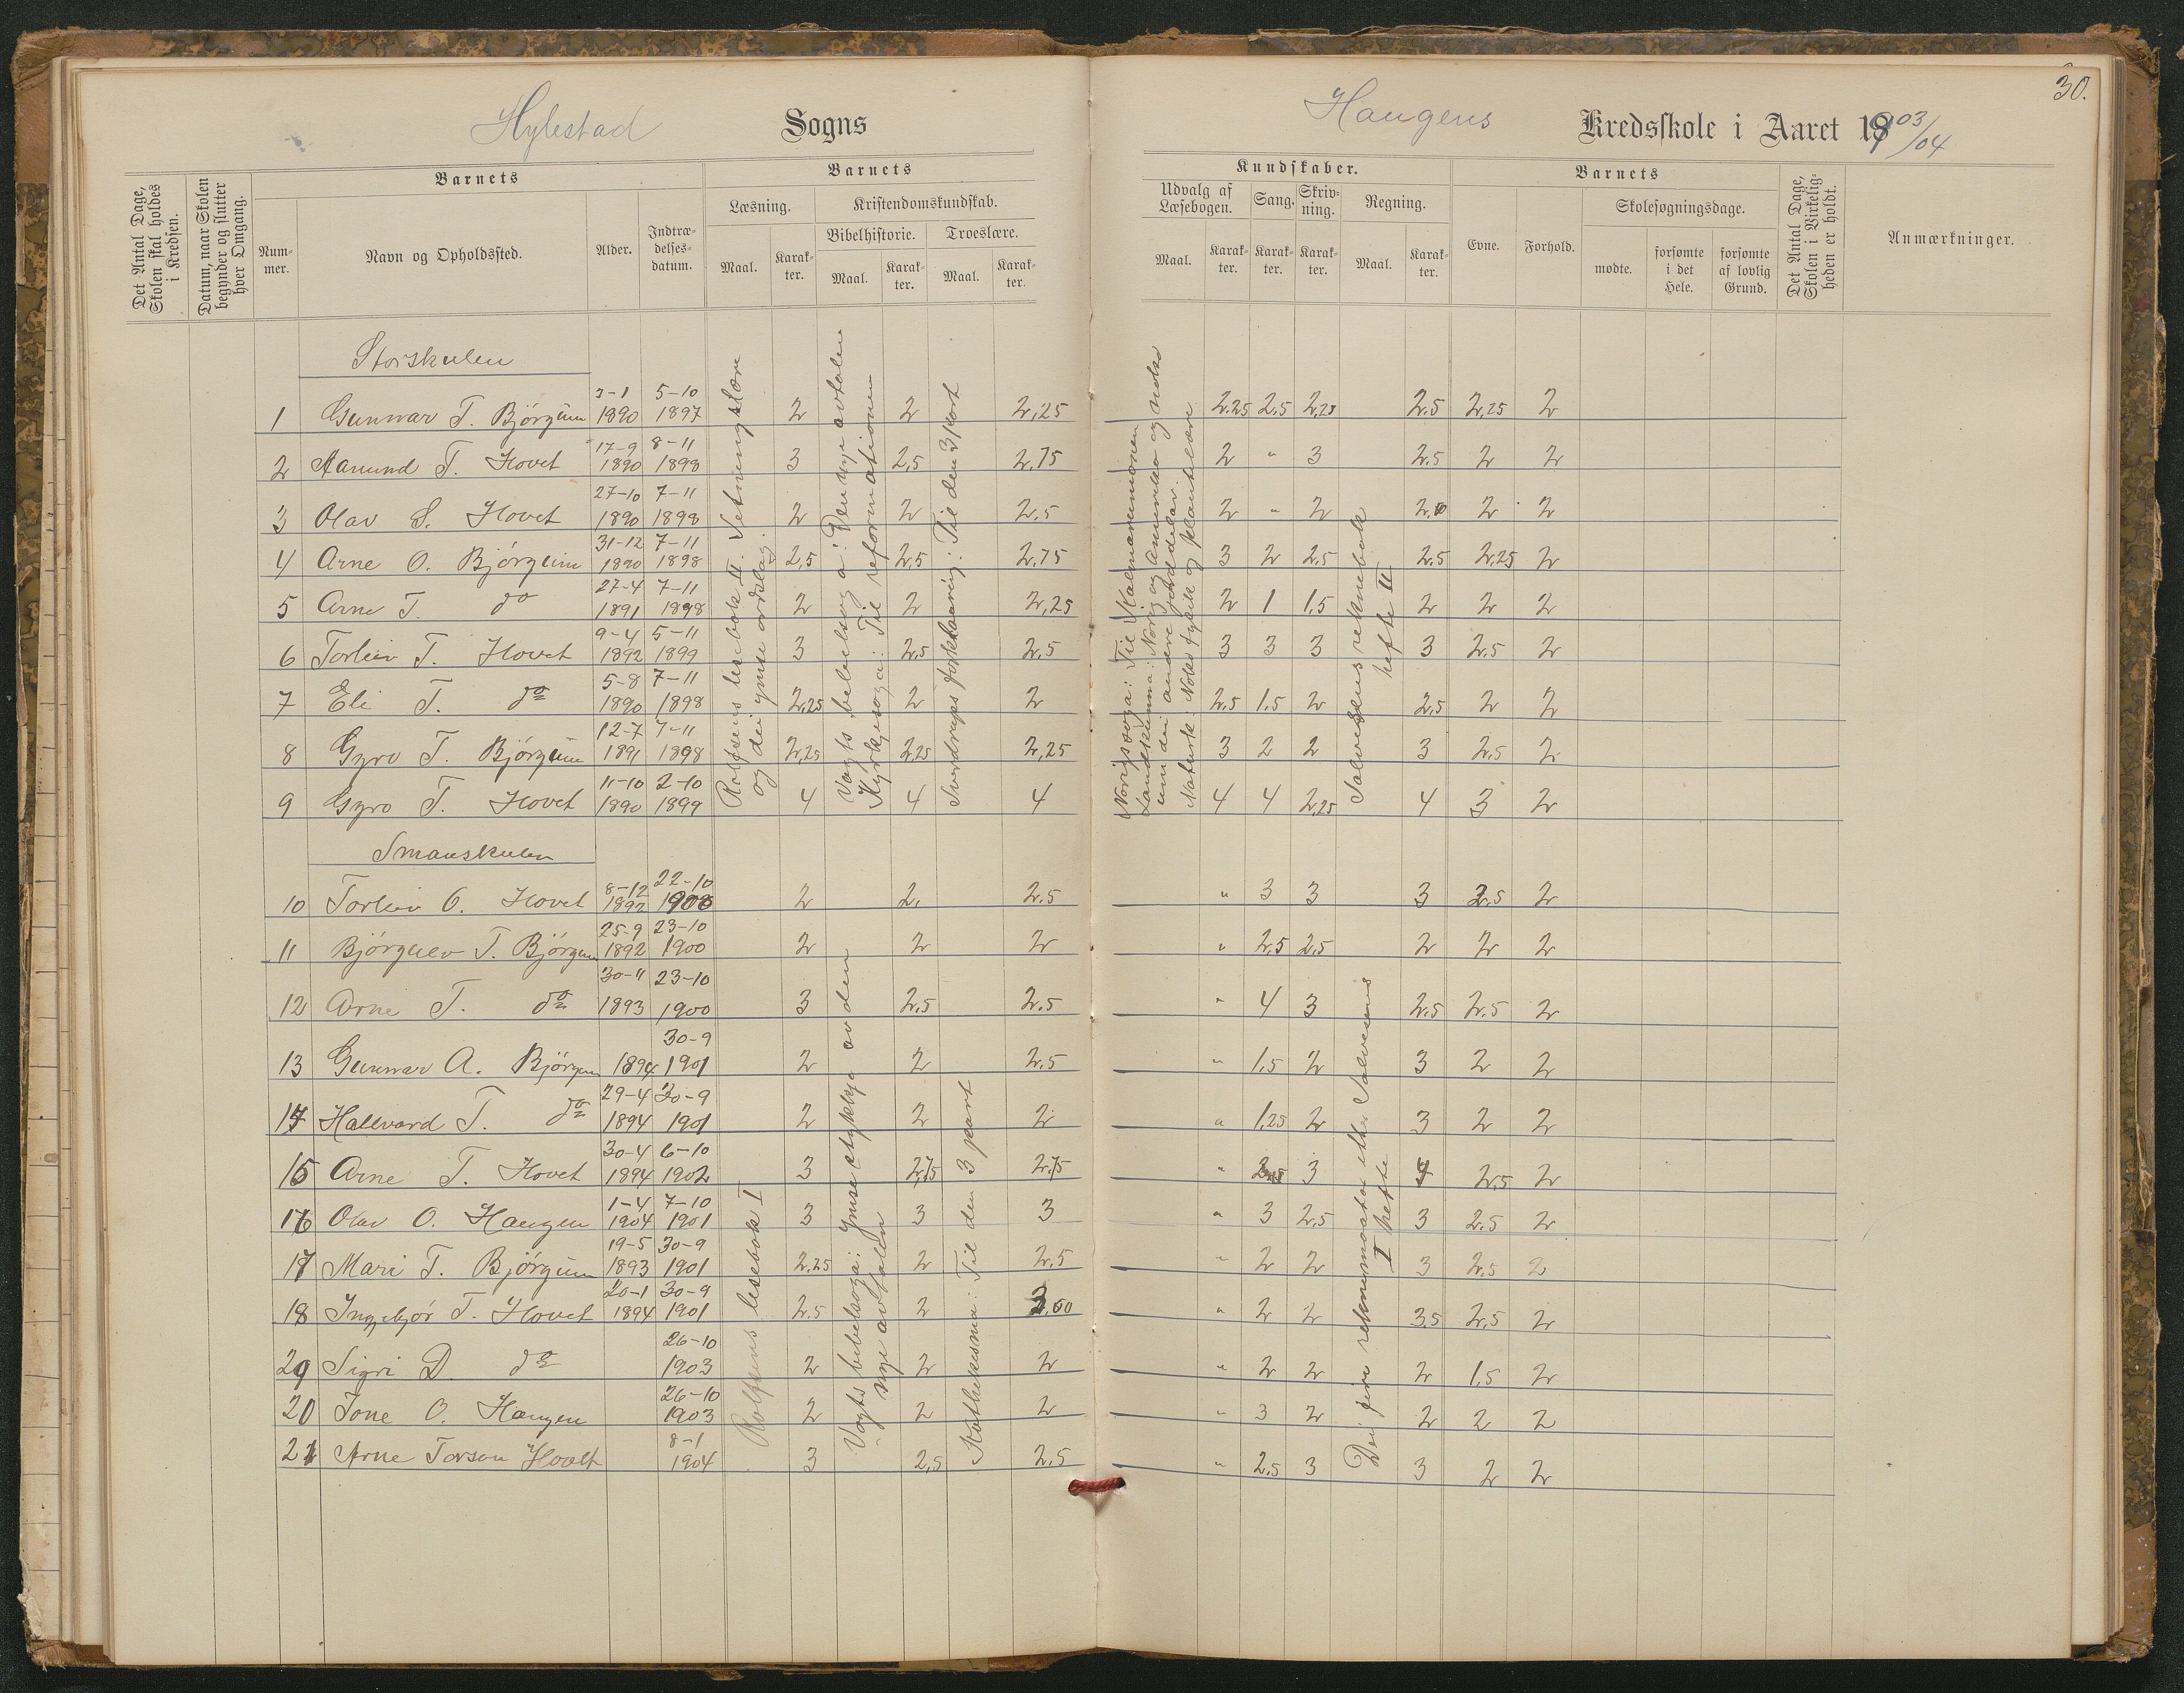 30.
Hylestad Sogns
Haugens Kredsskole i Aaret 1903/04
Det Antal Dage, Skolen skal holdes i Kredsen.
Datum, naar Skolen begynder og slutter hver Omgang.
Barnets
Nummer.
Navn og Opholdssted.
Alder.
Indtrædelsesdatum.
Barnets
Læsning.
Maal.
Karakter.
Kristendomskundskab.
Bibelhistorie.
Maal.
Karakter.
Troeslære.
Maal.
Karakter.
Kundskaber.
Udvalg af Læsebogen.
Maal.
Karakter.
Sang.
Karakter.
Skrivning.
Karakter.
Regning.
Maal.
Karakter.
Barnets
Evne.
Forhold.
Skolesøgningsdage.
mødte.
forsømte i det Hele.
forsømte af lovlig Grund.
Det Antal Dage, Skolen i Virkeligheden er holdt.
Anmærkninger.
Storskulen
1 Gunnar T. Björgum 3-1 1890 5-10 1897 2 2 2,25 2,25 2,5 2,25 2,5 2,25 2
2 Aamund T. Hovet 17-9 1890 8-11 1898 3 2,5 2,75 2 " 3 2,5 2 2
3 Olav S. Hovet 27-10 1890 7-11 1898 2 2 2,5 2 " 2 2 2
4 Arne O. Björgum 31-12 1890 7-11 1898 2,5 2,5 2,75 3 2 2,5 2,5 2,25 2
5 Arne T. do 27-4 1891 7-11 1898 2 2 2,25 2 1 1,5 2 2 2
6 Torleiv T. Hovet 9-4 1892 5-11 1899 3 2,5 2,5 3 3 3 3 2,5 2
7 Eli T. do 5-8 1890 7-11 1898 2,25 2 2 2,5 1,5 2 2,5 2 2
8 Gyro T. Björgum 12-7 1891 7-11 1898 2,25 2,25 2,25 3 2 2 3 2,5 2
9 Gyro T. Hovet 11-10 1890 2-10 1899 4 4 4 4 4 2,25 4 3 2
Rolfsens lesebok II. Retningslære
og dei ymse ordslag.
Vogts bibelsoga: Den nye avtalen
Kyrkjesoga: Til reformationen
Sverdrups forklaaring: Til den 3 part
Norigssoga: Til Kalmarunionen
Landkunna: Norig og Amerika og noko
um dei andre jorddelar.
Naturk. Noko fysikk og plantelære
Salvesens reknebok
hefte II
Smaaskulen
10 Torleiv O. Hovet 8-12 1892 22-10 1900 2 2. 2,5 " 3 3 3 2,5 2
11 Björgulv T. Björgum 25-9 1892 23-10 1900 2 2 2 " 2,5 2,5 2 2 2
12 Arne T. do 30-11 1893 23-10 1900 3 2,5 2,5 " 4 3 2,5 2,5 2
13 Gunnar A. Björgum 1894 30-9 1901 2 2 2,5 " 1,5 2 3 2 2
14 Hallvard T. do 29-4 1894 30-9 1901 2 2 2 " 1,25 2 3 2 2
15 Arne T. Hovet 30-4 1894 6-10 1902 3 2,75 2,75 " 3 4 2,5 2
16 Olav O. Haugen 1-4 1904 7-10 1901 3 3 3 " 3 2,5 3 2,5 2
17 Mari T. Björgum 19-5 1893 30-9 1901 2,25 2 2,5 " 2 2 3 2,5 2
18 Ingebjör T. Hovet 20-1 1894 30-9 1901 2,5 2 " 2 2 3,5 2,5 2
29 Sigri D. do 26-10 1903 2 2 2 " 2 2 2 1,5 2
20 Tone O. Haugen 26-10 1903 2 2 2 " 3 2 2 2 2
21 Arne Torson Hovet 8-1 1904 3 2,5 2,5 " 2,5 3 3 2 2
Rolfsens lesebok I
Vogts bibelsoga: Ymse stykkje av den
nye avtalen
Kathekesma: Til den 3 part
Dei fire reknemaatar etter Salvesens
I hefte